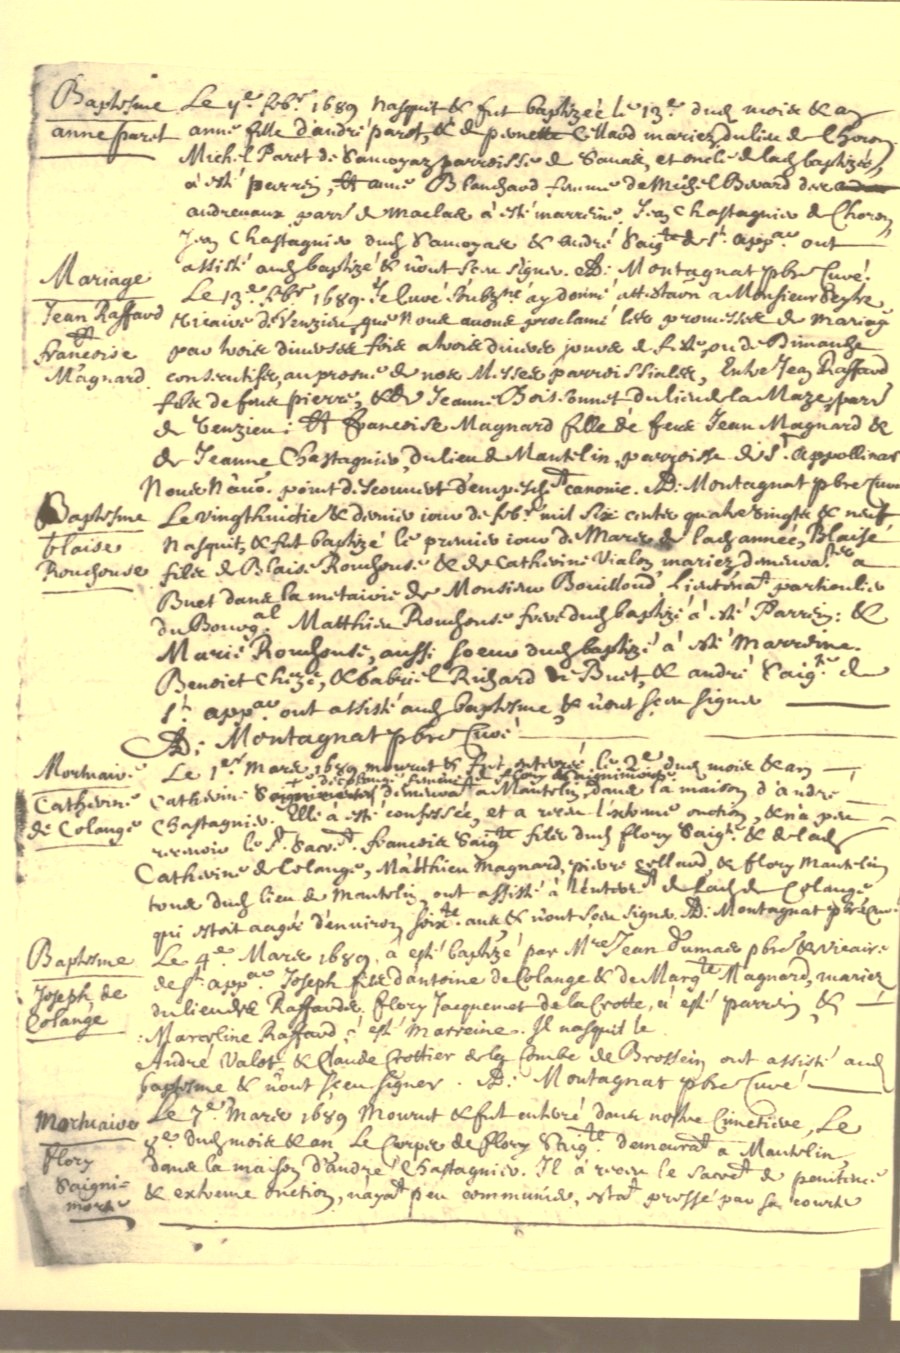 Baptesme
anne paret
Le febr. 1689 Nasquit & fut baptizée le 13e dud. mois & an
anne fille d'andré paret, & de pernette Cellard mariez, du lieu de Choron
Michel Paret de Samoyaz parroisse de et oncle de lad. baptizée,
à esté parrein, et anne Blanchard femme de Michel des
andrenaux parr. de Maclas à esté marreine. Jean Chastagnier de Choron,
Jean Chastagnier dud. Samoyas & andré Saig.te de St. app.ar ont
assisté aud. baptizé & n'ont sceu signer. AD: Montagnat pbre Curé.
Mariage
Jean Raffard
et
francoise
Magnard
Le 13e febr. 1689. Je Curé ay donné attestaon a Monsieur
vicaire de Venzieu, que Nous avons proclamé les promesses de mariage
par trois diverses fois a trois divers jours de feste, ou de Dimanche
consecutifs, au prosne de nos Messes parroissiales, Entre Jean Raffard
fils de feus pierre, & de Jeanne Boissonnet du lieu de la Maze, parr.
de Venzieu: et francoise Magnard fille de feus Jean Magnard &
de Jeanne Chastagnier, du lieu de Mantelin, parroisse de St. Appollinar
Nous n'avo. point descouvert d'empesch.t canonic. AD: Montagnat pbre Curé
Baptesme
blaise
Rouchouse
Le vingthuictie & dernier iour de febr. mil six cents quatre vingts & neuf
Nasquit, & fut baptizé le premier iour de Mars de lad. année, Blaise
fils de Blaise Rouchouse & de Catherine Vialon mariez, a
Buet dans la metairie de Monsieur Bouilloud, Lieutenat particulier
du Bourg.al Matthieu Rouchouse frere dud. baptizé à esté Parrein: &
Marie Rouchouse, aussi soeur dud. baptizé à esté Marreine.
Benoict & Gabriel Richard de Buet, & andré Saig.te de
St. app.ar ont assisté aud. baptesme & n'ont sceu signer
AD: Montagnat pbre Curé
Mortuaire
Catherine
de Colange
Le 1er Mars 1689 mourut & fut enterrée le 2e dud. mois & an
de Colange femme de flory Saignimorte
Catherine demeurat a Mantelin, dans la maison d'andre
Chastagnier. Elle a esté confessée, et a receu l'extreme onction, & n'a peu
recevoir le St. Sacr.t francois Saig.te fils dud. flory Saig.te & de lad.
Catherine de Colange, Matthieu Magnard, pierre Cellard, & flory Mantelin
tous dud. lieu de Mantelin, ont assisté à l'enterr.t de lad. de Colange
qui estoit aagée d'environ soix.te ans, & n'ont sceu signer. AD: Montagnat pbre Cur.
Baptesme
Joseph de
Colange
Le 4e Mars 1689. à esté baptizé par Mre Jean Dumas pbre & vicaire
de St. app.ar Joseph fils d'antoine de Colange & de Marg.te Magnard, mariez
du lieu des Raffards. flory Jacquemet de la Crotte, à esté parrein, &
Marceline Raffard à esté Marreine. Il nasquit le
André Valot, & Claude Crottier de la Combe de Brossein, ont assisté aud.
baptesme & n'ont sceu signer. AD: Montagnat pbre Curé
Mortuaire
flory
Saigni-
morte
Le 7e Mars 1689 Mourut & fut enterré dans nostre Cimetiere, Le
8e dud. mois & an Le Corps de flory Saig.te demeurat a Mantelin,
dans la maison d'andré Chastagnier. Il à receu le sacr.t de penitence
& extreme onction, n'ayat peu communier, estat pressé par sa courte